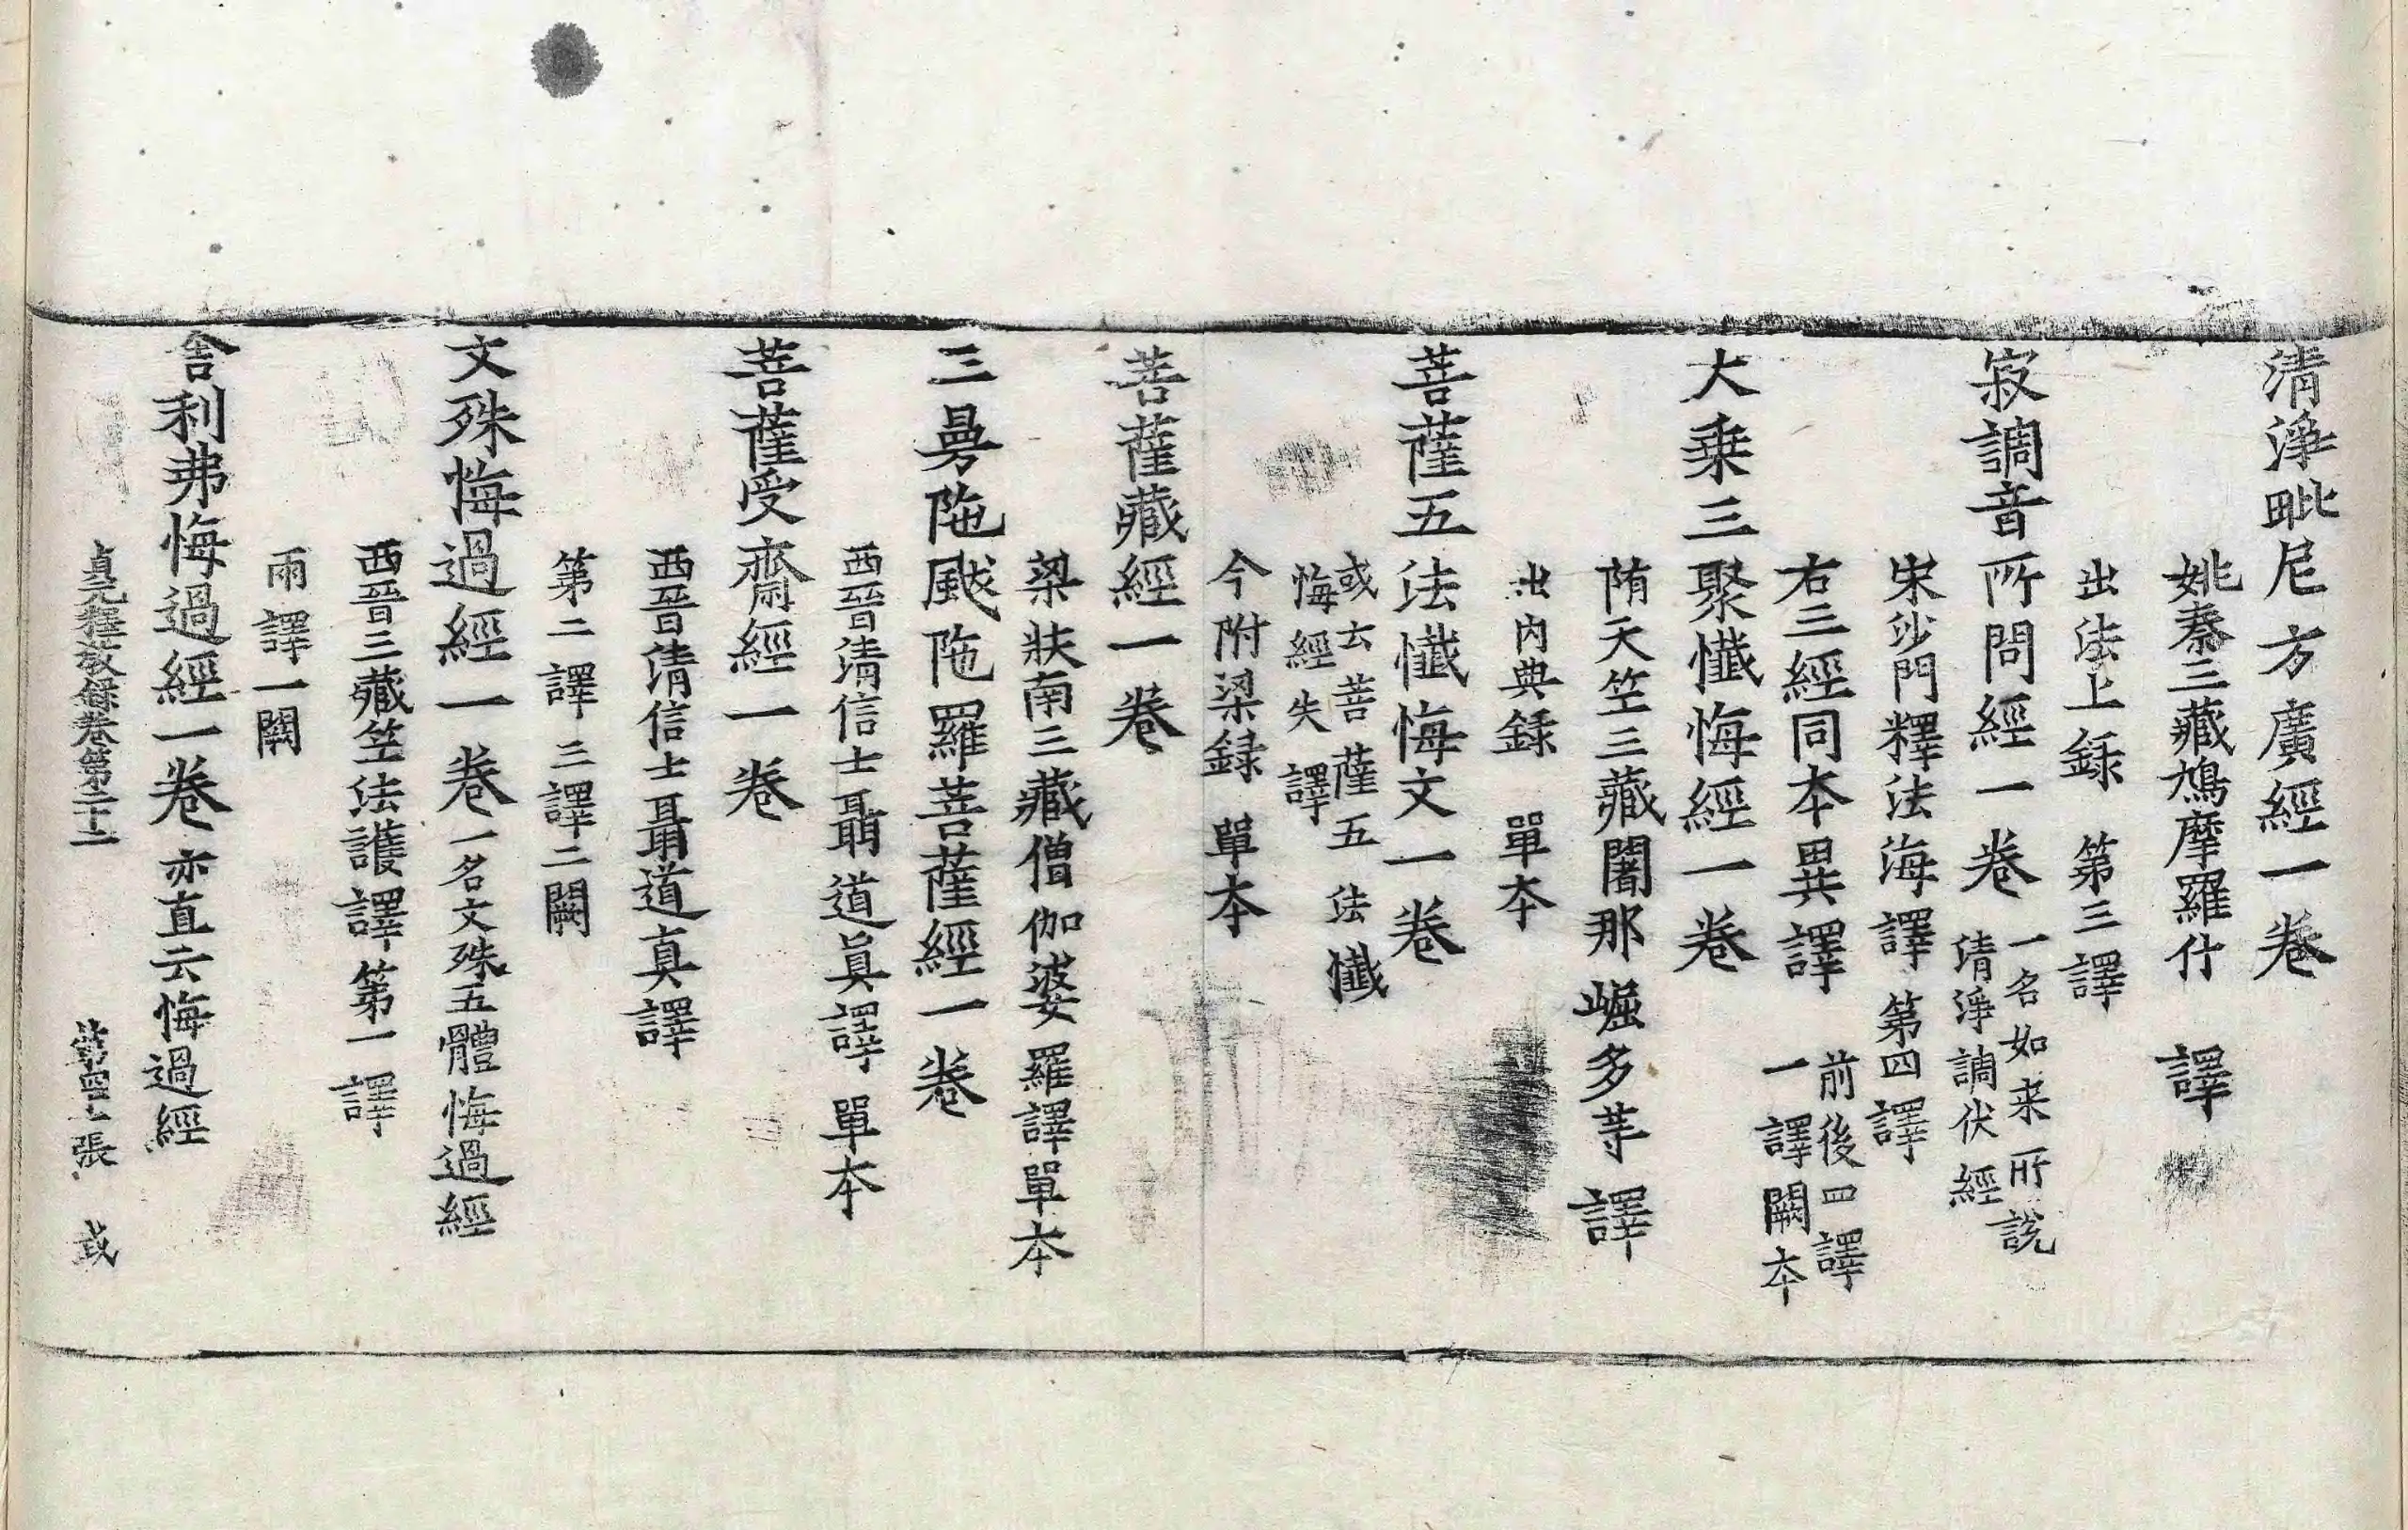 清淨毗尼方廣經一卷
姚秦三藏鳩摩羅什 譯
出法上録 第三譯
寂調音所問經一卷 一名如来所說
清淨調伏經
宋沙門釋法海譯 第四譯
右三經同本異譯 前後四譯
一譯闕本
大乗三聚懺悔經一卷
隋天竺三藏闍那崛多等譯
出内典録 單本
菩薩五法懺悔文一卷
或云菩薩五法懺
悔經失譯
今附梁録 單本
菩薩藏經一卷
梁扶南三藏僧伽婆羅譯單本
三曼陁颰陁羅菩薩經一卷
西晉清信士聶道真譯 單本
菩薩受齋經一卷
西晉清信士聶道真譯
第二譯 三譯二闕
文殊悔過經一卷 一名文殊五體悔過經
西晉三藏竺法護譯第一譯
兩譯一闕
舎利弗悔過經一卷 亦直云悔過經
貞元釋教録卷第二十二 張